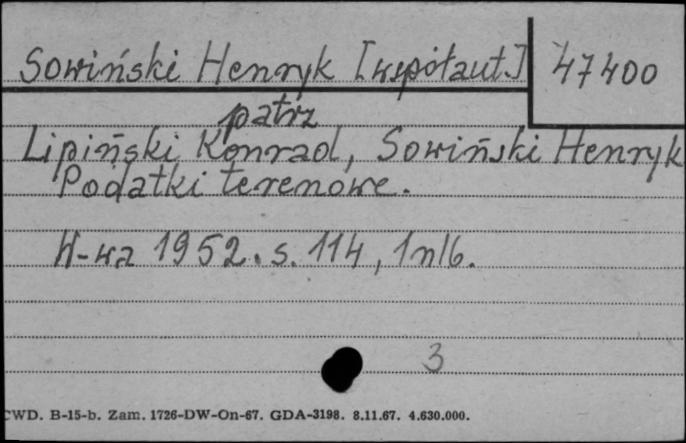 Sowiński Henryk [współaut.] 47400
patrz
Lipiński Konrad, Sowiński Henryk
Podatki terenowe.
W-wa 1952. s. 114, 1nlb.
3
CWD. B-15-b. Zam. 1726-DW-On-67. GDA-3198. 8.11.67. 4.630.000.